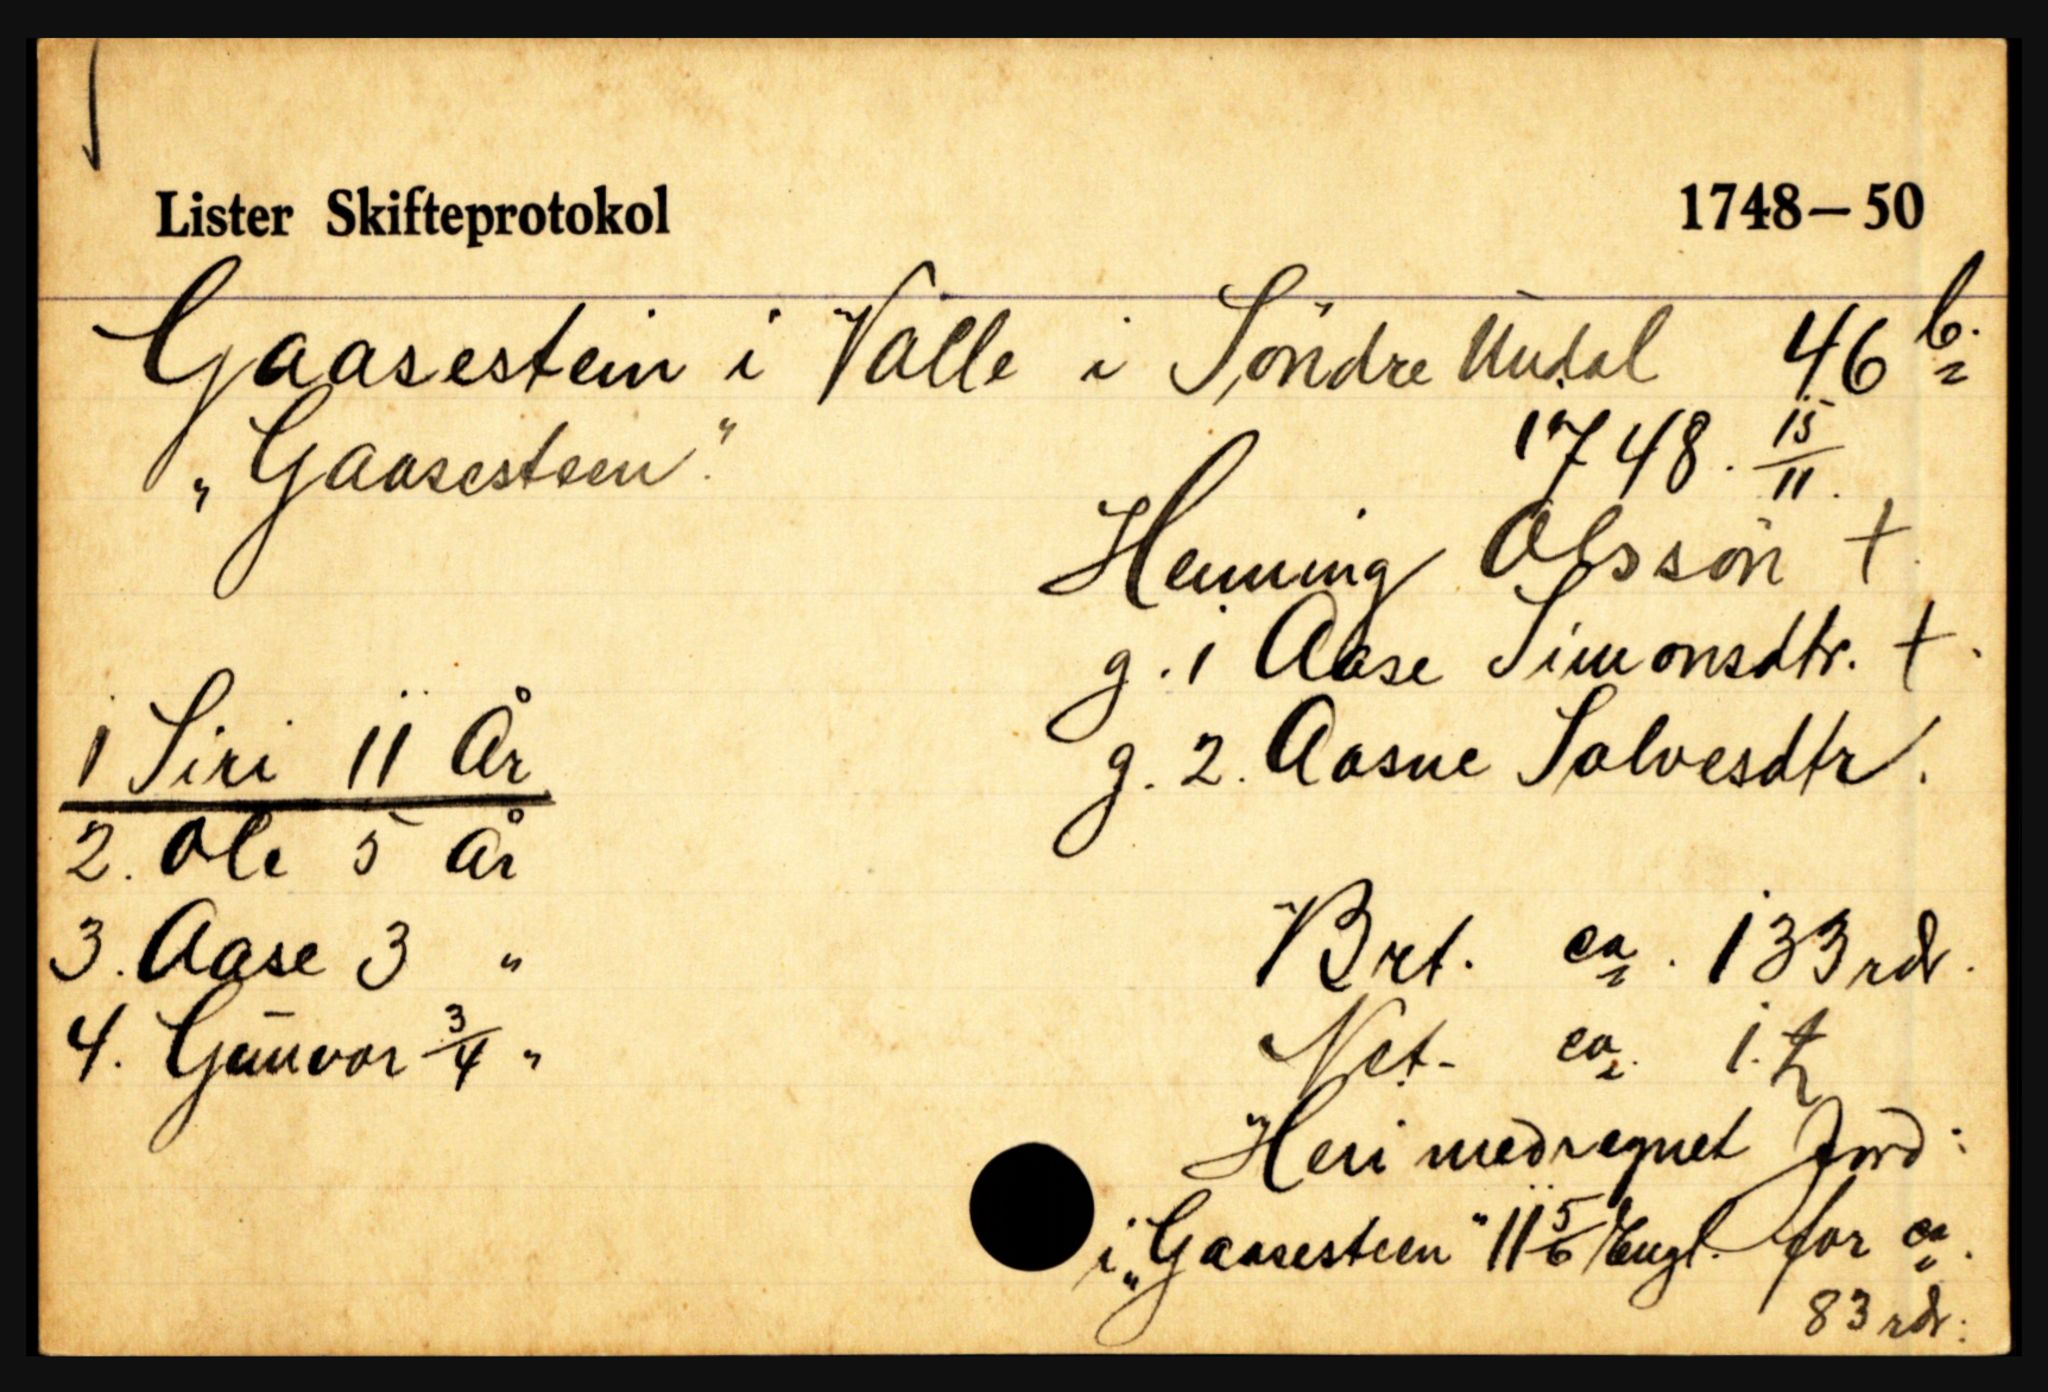 Lister Skifteprotokol 1748—50
Gaasestein i Valle i Söndre Undal 46 b.
„Gaasesteen". 1748. 15/11.
Henning Olssön +.
g. 1 Aase Simonsdtr. +.
g. 2. Aasne Salvesdtr.
1 Siri 11 År
2. Ole 5 År
3. Aase 3 "
4. Gunvor 3/4 "
Brt. ca. 133 rdr.
Net- ca. 1. "
Heri medregnet Jord:
i „Gaasesteen" 11 5/6 Engl. for ca.
83 rdr.